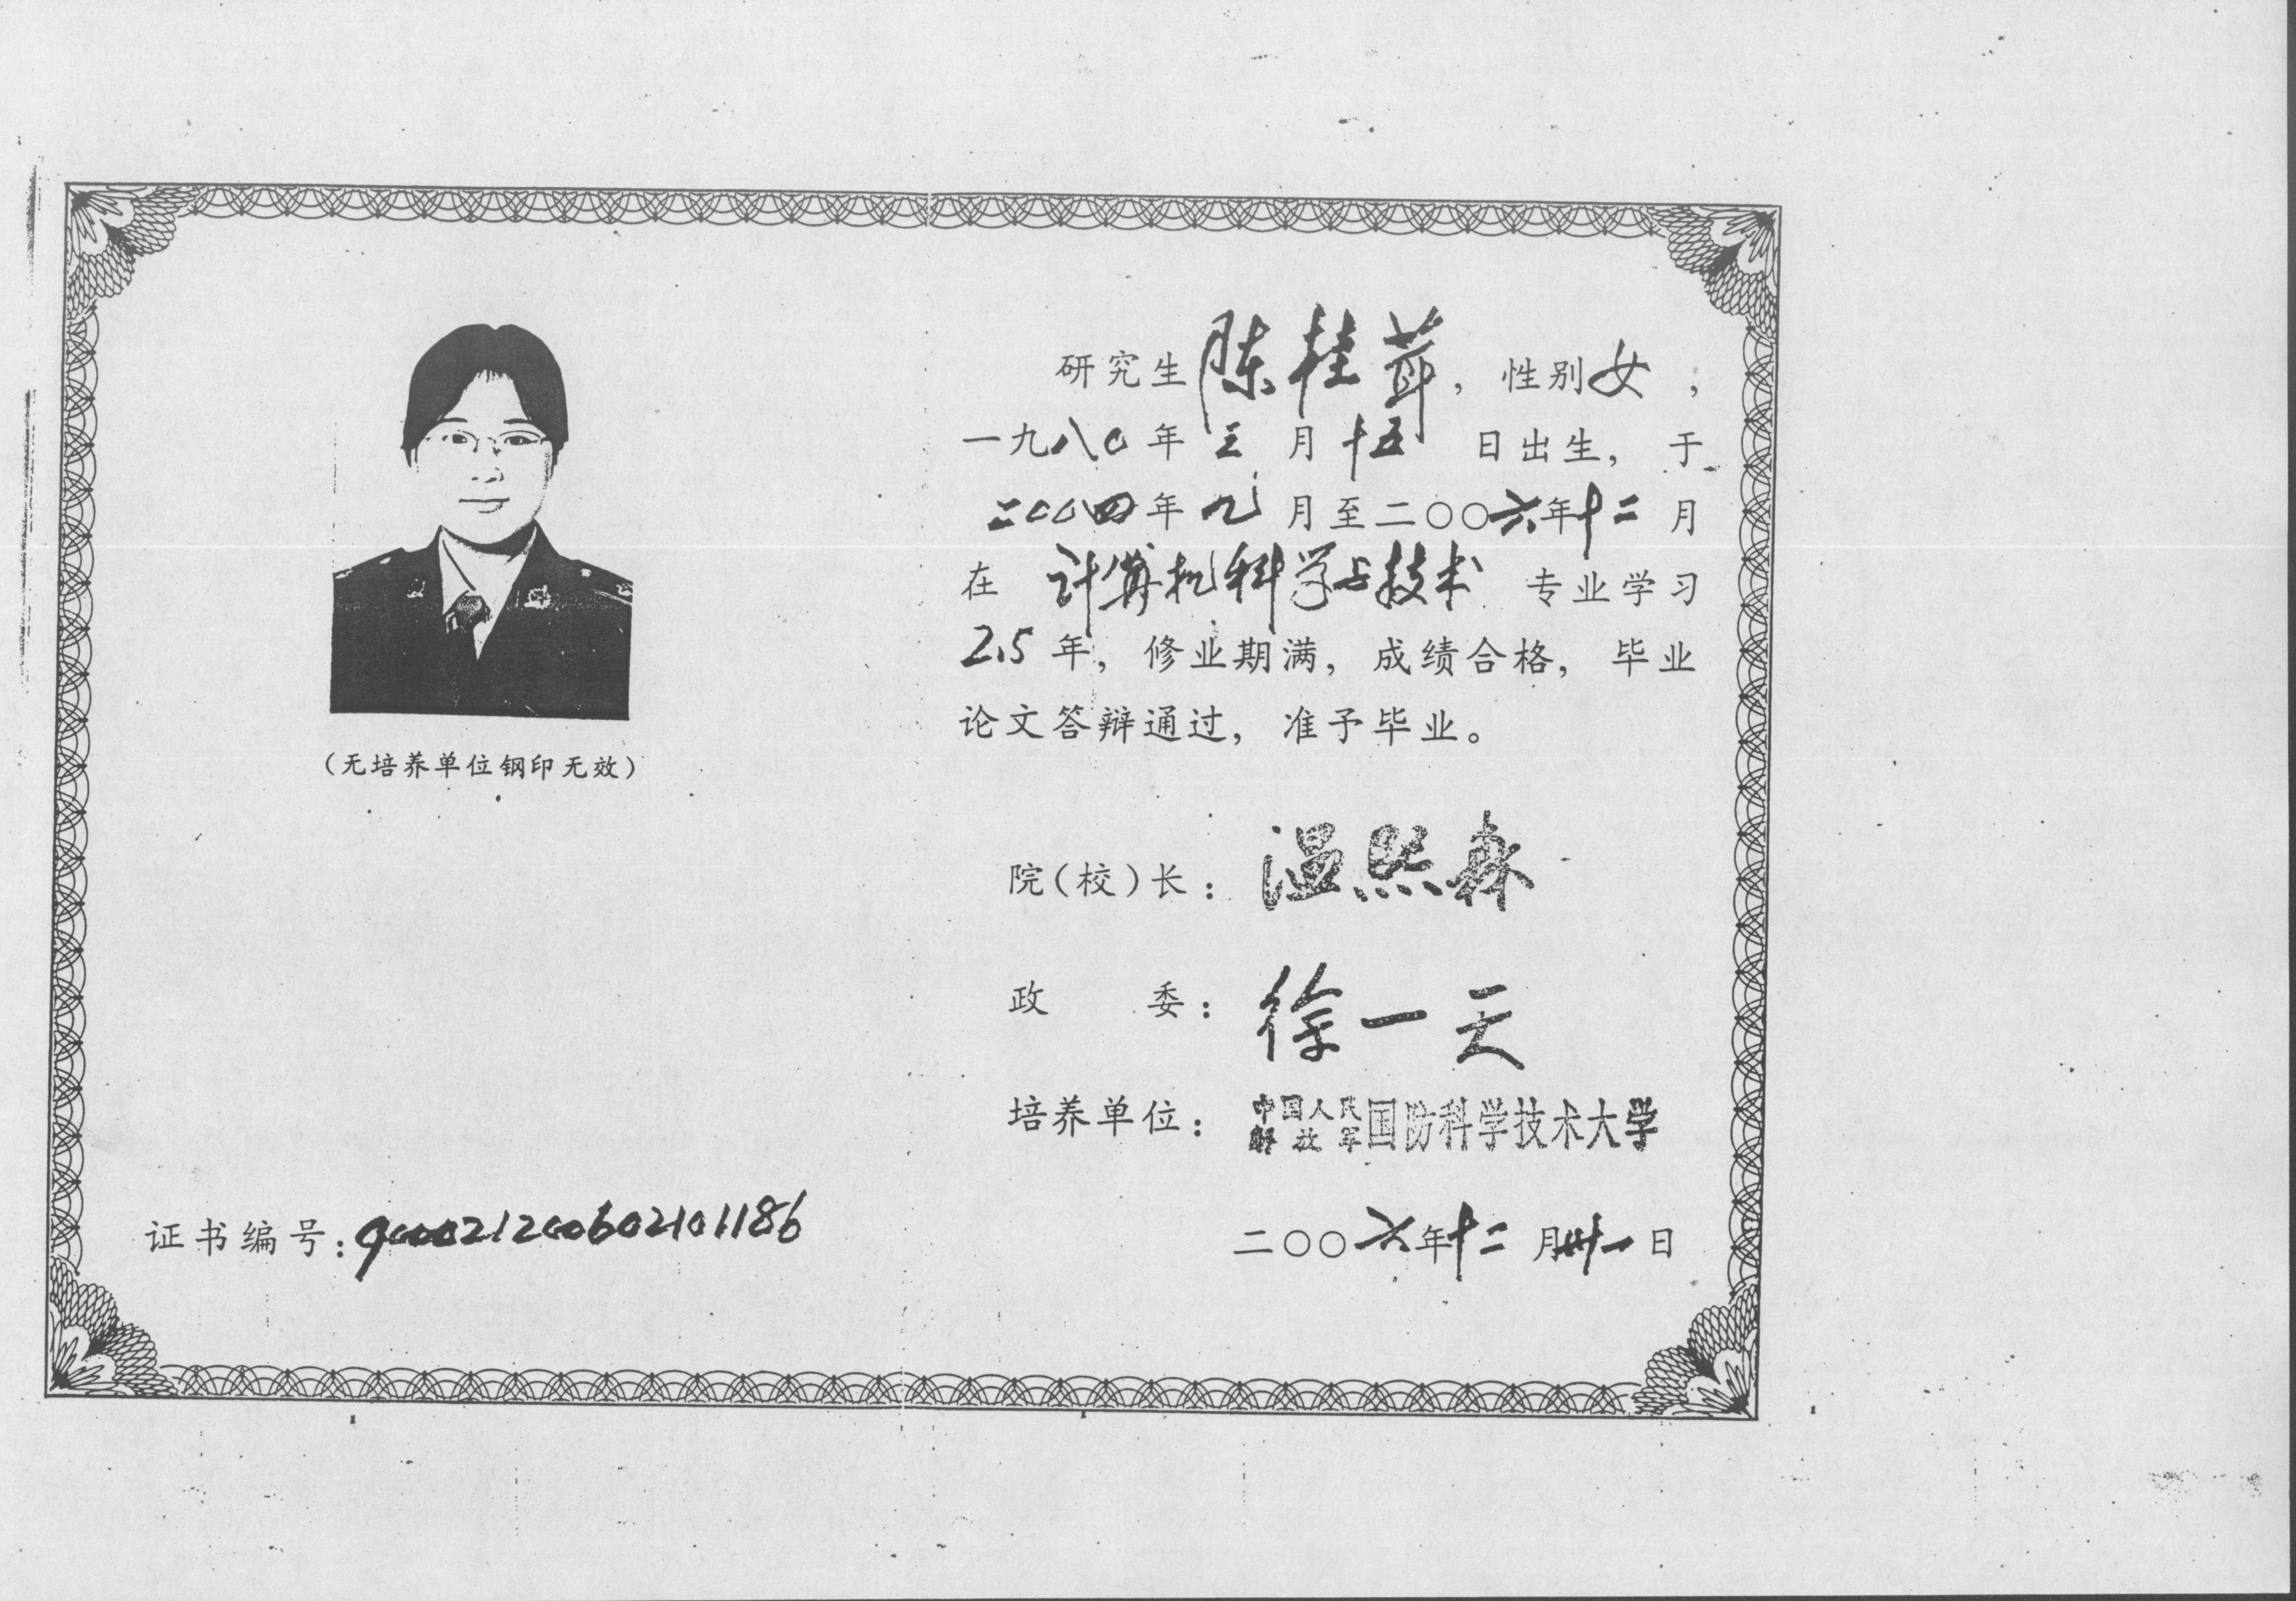 研究生陈桂茸，性别女，
一九八〇年三月十五日出生，于
二〇〇四年九月至二〇〇六年十二月
在计算机科学与技术专业学习
2.5年，修业期满，成绩合格，毕业
论文答辩通过，准予毕业。
（无培养单位钢印无效）
院（校）长：温熙森
政委：徐一天
培养单位：中国人民解放军国防科学技术大学
证书编号：900021200602101186
二〇〇六年十二月卅一日